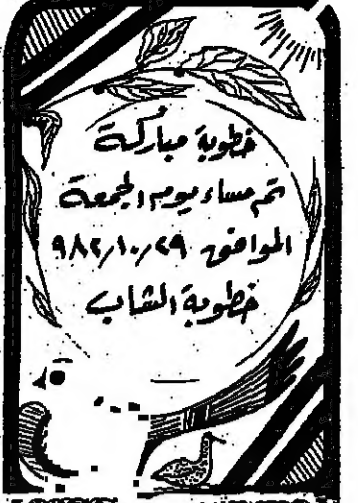 خطوبة مباركة
تم مساء يوم الجمعة
الموافق ٩٨٢/١٠/٢٩
خطوبة الشاب